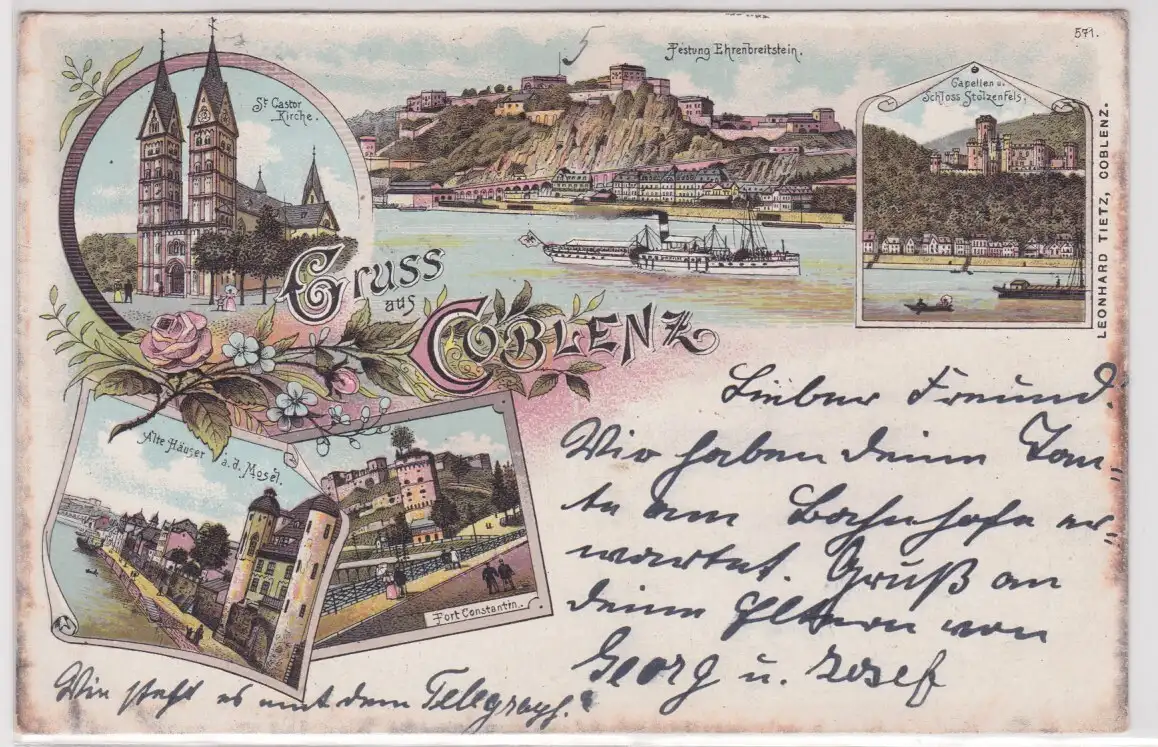 571.
Festung Ehrenbreitstein.
St Castor
Kirche.
Capellen u.
Schloss Stolzenfels,
LEONHARD TIETZ, COBLENZ.
Gruss
aus
COBLENZ
Alte Häuser
a. d. Mosel.
Fort Constantin.
Lieber Freund!
Wir haben deine Tan„
te am Bahnhofe er„
wartet. Gruß an
deine Eltern von
Georg u. Josef
Wie steht es mit dem Telegraph.